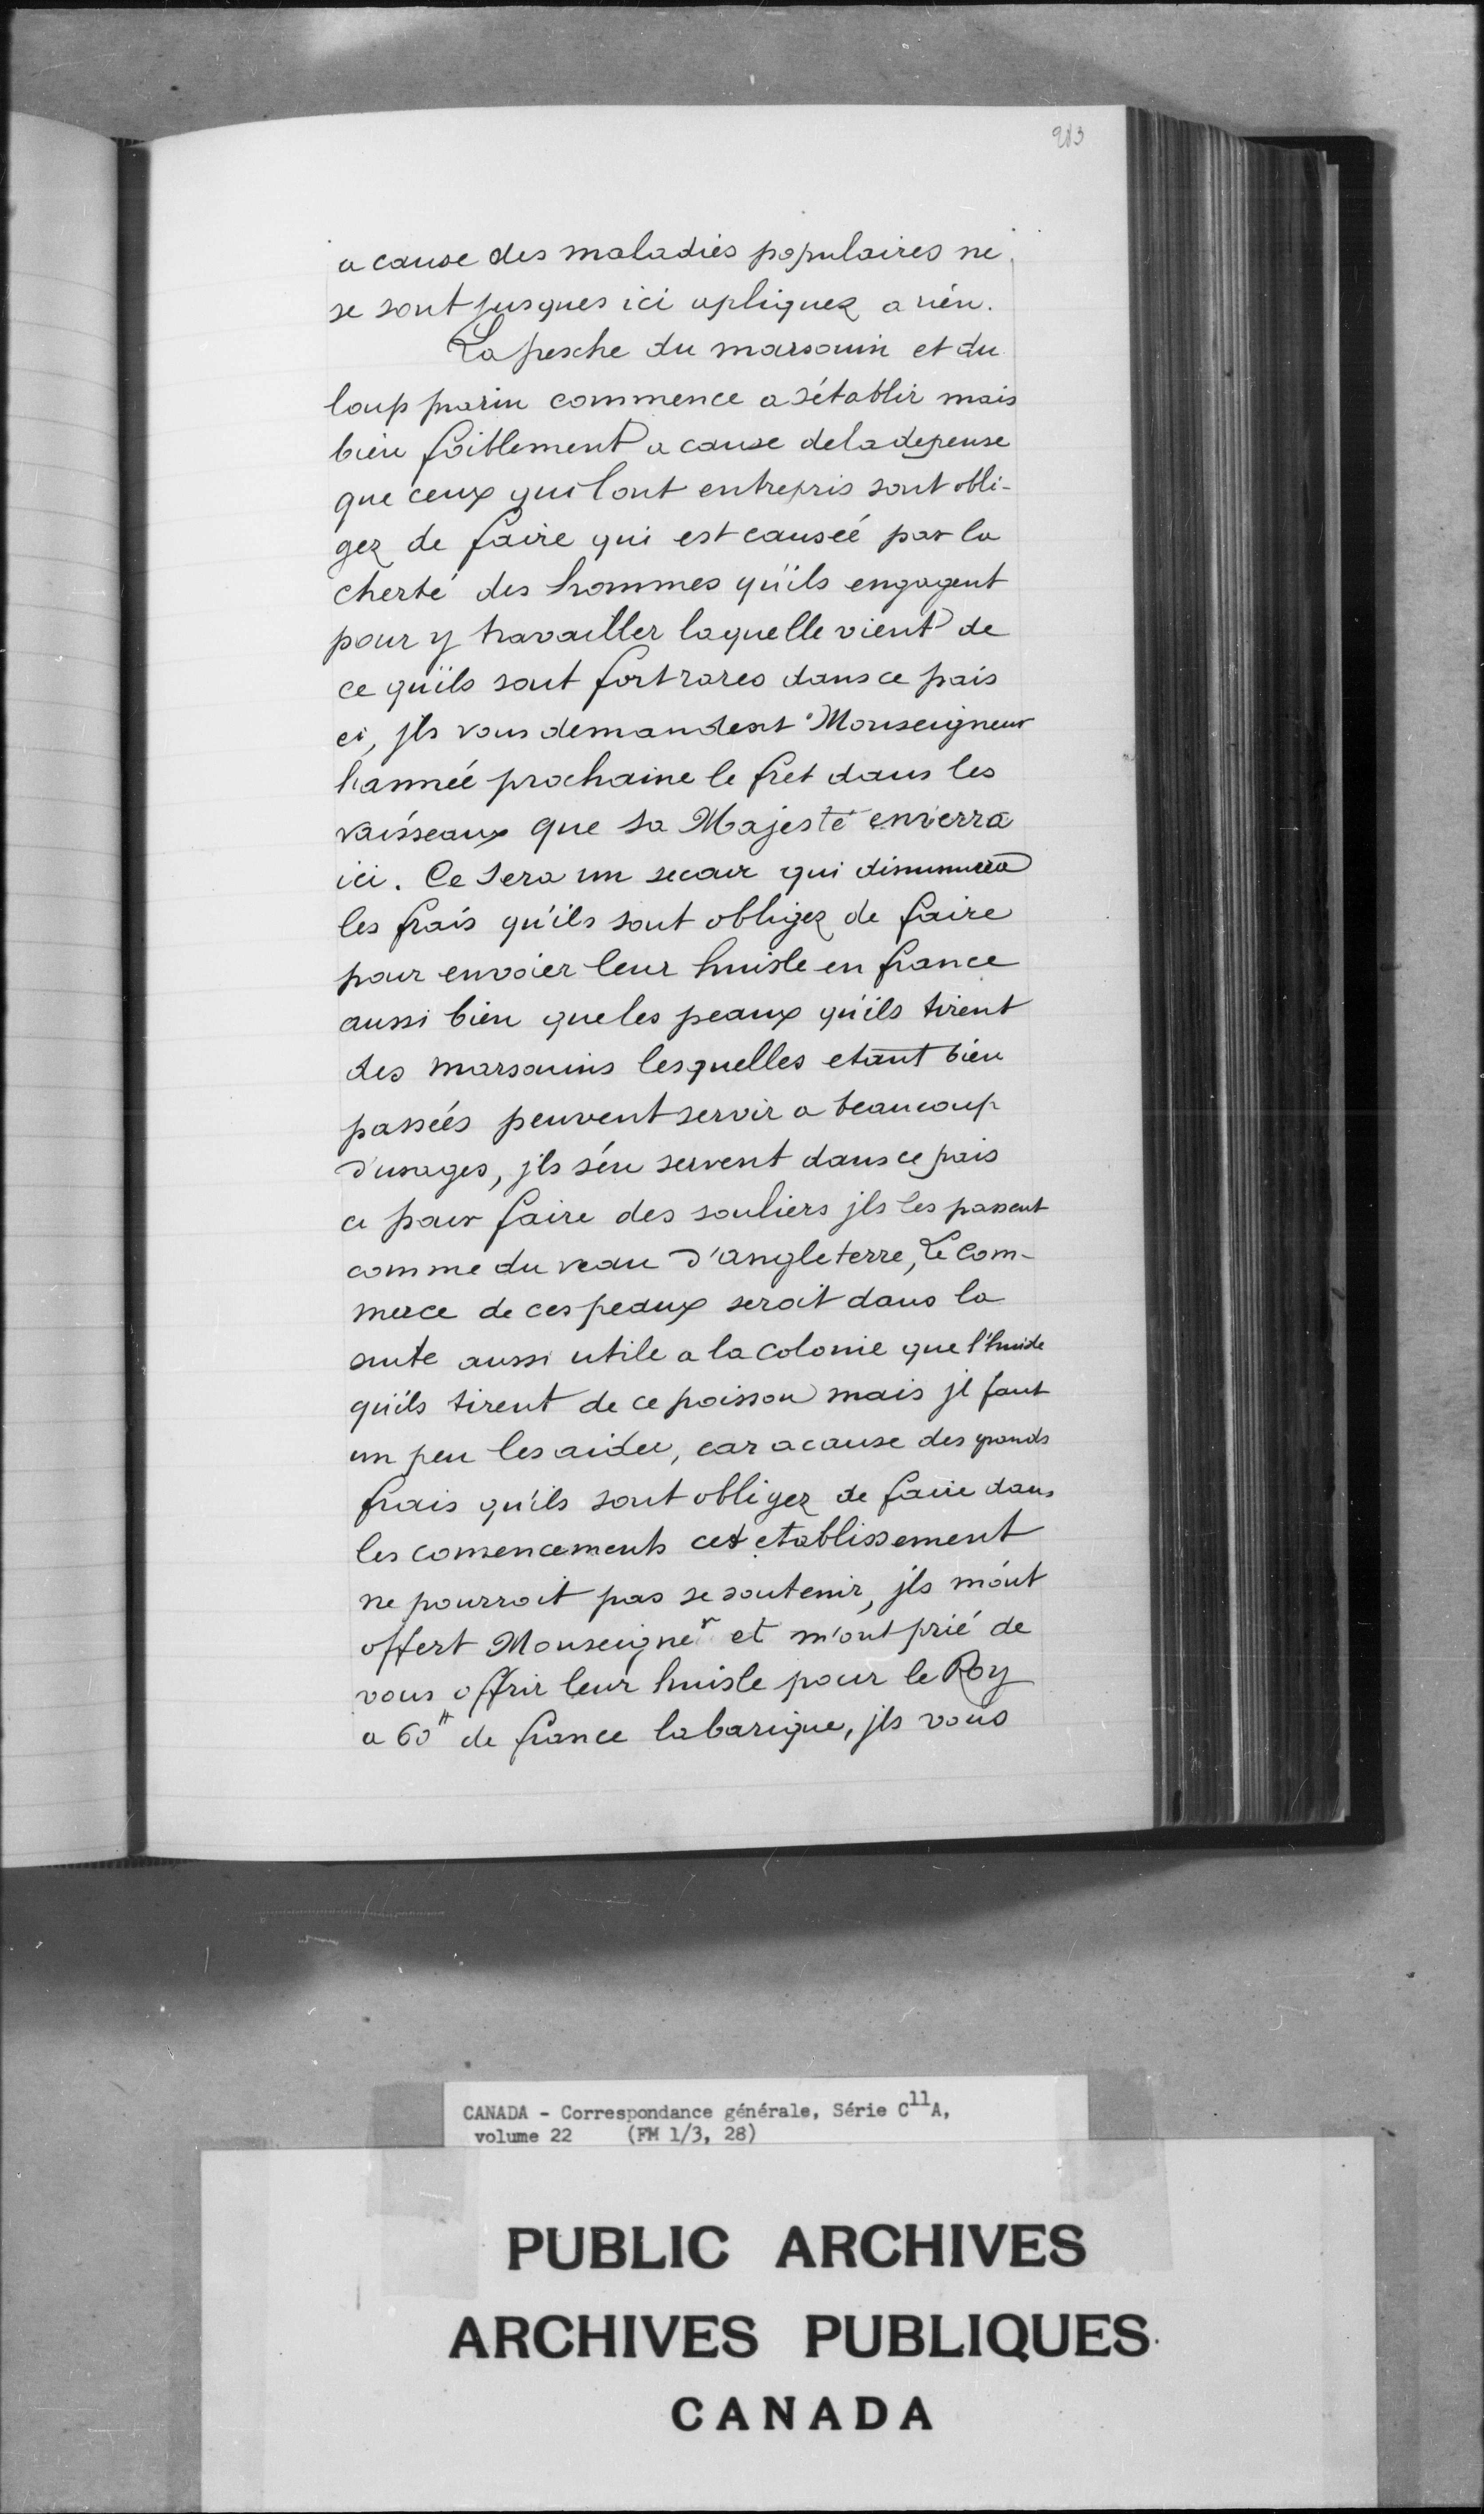 213
a cause des maladies populaires ne
se sont jusques ici apliquez a rien.
La pesche du marsouin et du
loup marin commence a s'établir mais
bien foiblement a cause de la depense
que ceux qui l'ont entrepris sont obli-
gez de faire qui est causée par la
cherté des hommes qu'ils engagent
pour y travailler laquelle vient de
ce qu'ils sont fort rares dans ce pais
ci, jls vous demandent Monseigneur
l'année prochaine le fret dans les
vaisseaux que sa Majesté enverra
ici. Ce sera un secour qui diminuera
les frais qu'ils sont obligez de faire
pour envoier leur huisle en france
aussi bien que les peaux qu'ils tirent
des marsouins lesquelles etant bien
passées peuvent servir a beaucoup
d'usages, jls s'en servent dans ce pais
ci pour faire des souliers jls les passent
comme du veau d'angleterre, Le com-
merce de ces peaux seroit dans la
suite aussi utile a la colonie que l'huisle
qu'ils tirent de ce poisson mais jl faut
un peu les aider, car a cause des grands
frais qu'ils sont obligez de faire dans
les comencements cet etablissement
ne pourroit pas se soutenir, jls m'ont
offert Monseigner et m'ont prié de
vous offrir leur huisle pour le Roy
a 60# de france la barique, jls vous
CANADA - Correspondance générale, Série C11A,
volume 22 (FM 1/3, 28)
PUBLIC ARCHIVES
ARCHIVES PUBLIQUES
CANADA